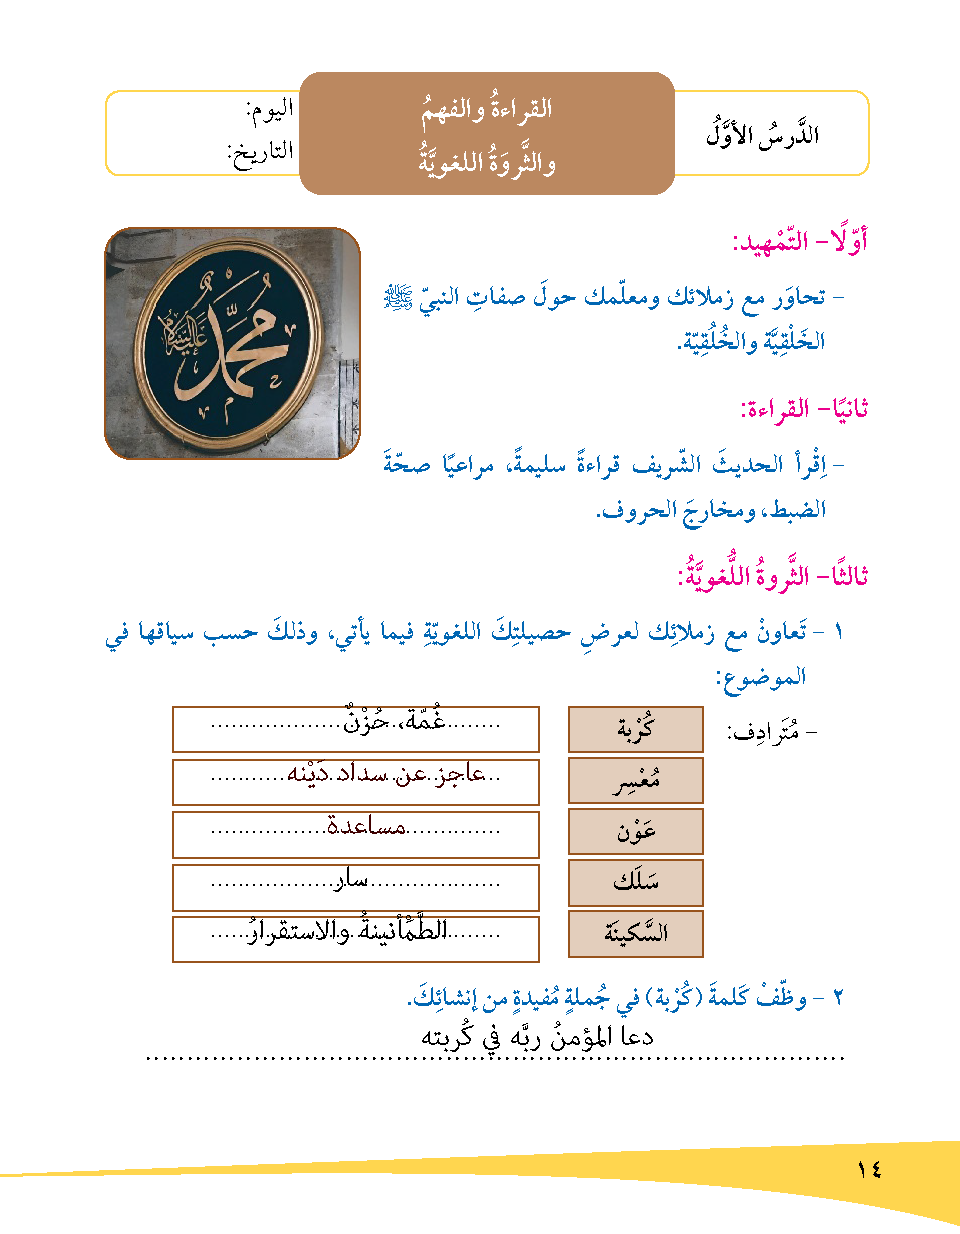 الدَّرسُ الأوَّلُ
القراءةُ والفهمُ
والثَّروَةُ اللغويَّةُ
اليوم:
التاريخ:
أوّلًا- التَّمْهيد:
- تحاوَر مع زملائك ومعلّمك حولَ صفاتِ النبيّ ﷺ
الخَلْقِيَّة والخُلُقِيّة.
محمّد
عليه السلام
ثانيًا- القراءة:
- اِقْرأ الحديثَ الشّريف قراءةً سليمةً، مراعيًا صحّةَ
الضبط، ومخارجَ الحروف.
ثالثًا- الثَّروةُ اللُّغويَّةُ:
١ - تَعاونْ مع زملائِك لعرضِ حصيلتِكَ اللغويّةِ فيما يأتي، وذلكَ حسب سياقها في
الموضوع:
- مُتَرادِف:
كُرْبة غُمّة، حُزْنٌ
مُعْسِر عاجز عن سداد دَيْنه
عَوْن مساعدة
سَلَك سار
السَّكينَة الطُّمَأْنينةُ والاستقرارُ
٢ - وظّفْ كَلمةَ (كُرْبة) في جُملةٍ مُفيدةٍ من إنشائِكَ.
دعا المؤمنُ ربَّه في كُربته
١٤